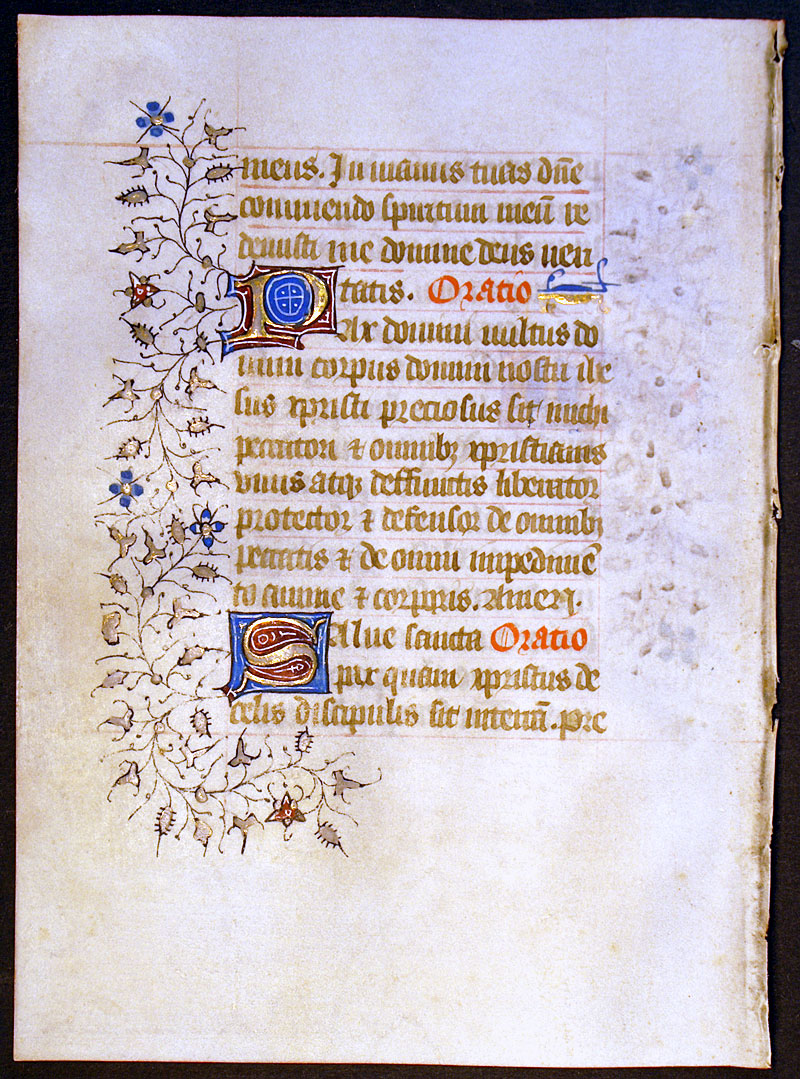 meus. In manus tuas dn̄e
commendo spiritum meū re
demisti me domine deus veri
tatis. Oratio
Pax domini vultus do
mini corpus domini nostri ihe
sus xpristi preciosus sit michi
peccatori & omnibꝫ xpristianis
vivis atqꝫ deffunctis liberator
protector & defensor de omnibꝫ
peccatis & de omni impedimē
to anime & corporis. Amen.
Salve sancta Oratio
quam xpristus de
celis discipulis sit . pre